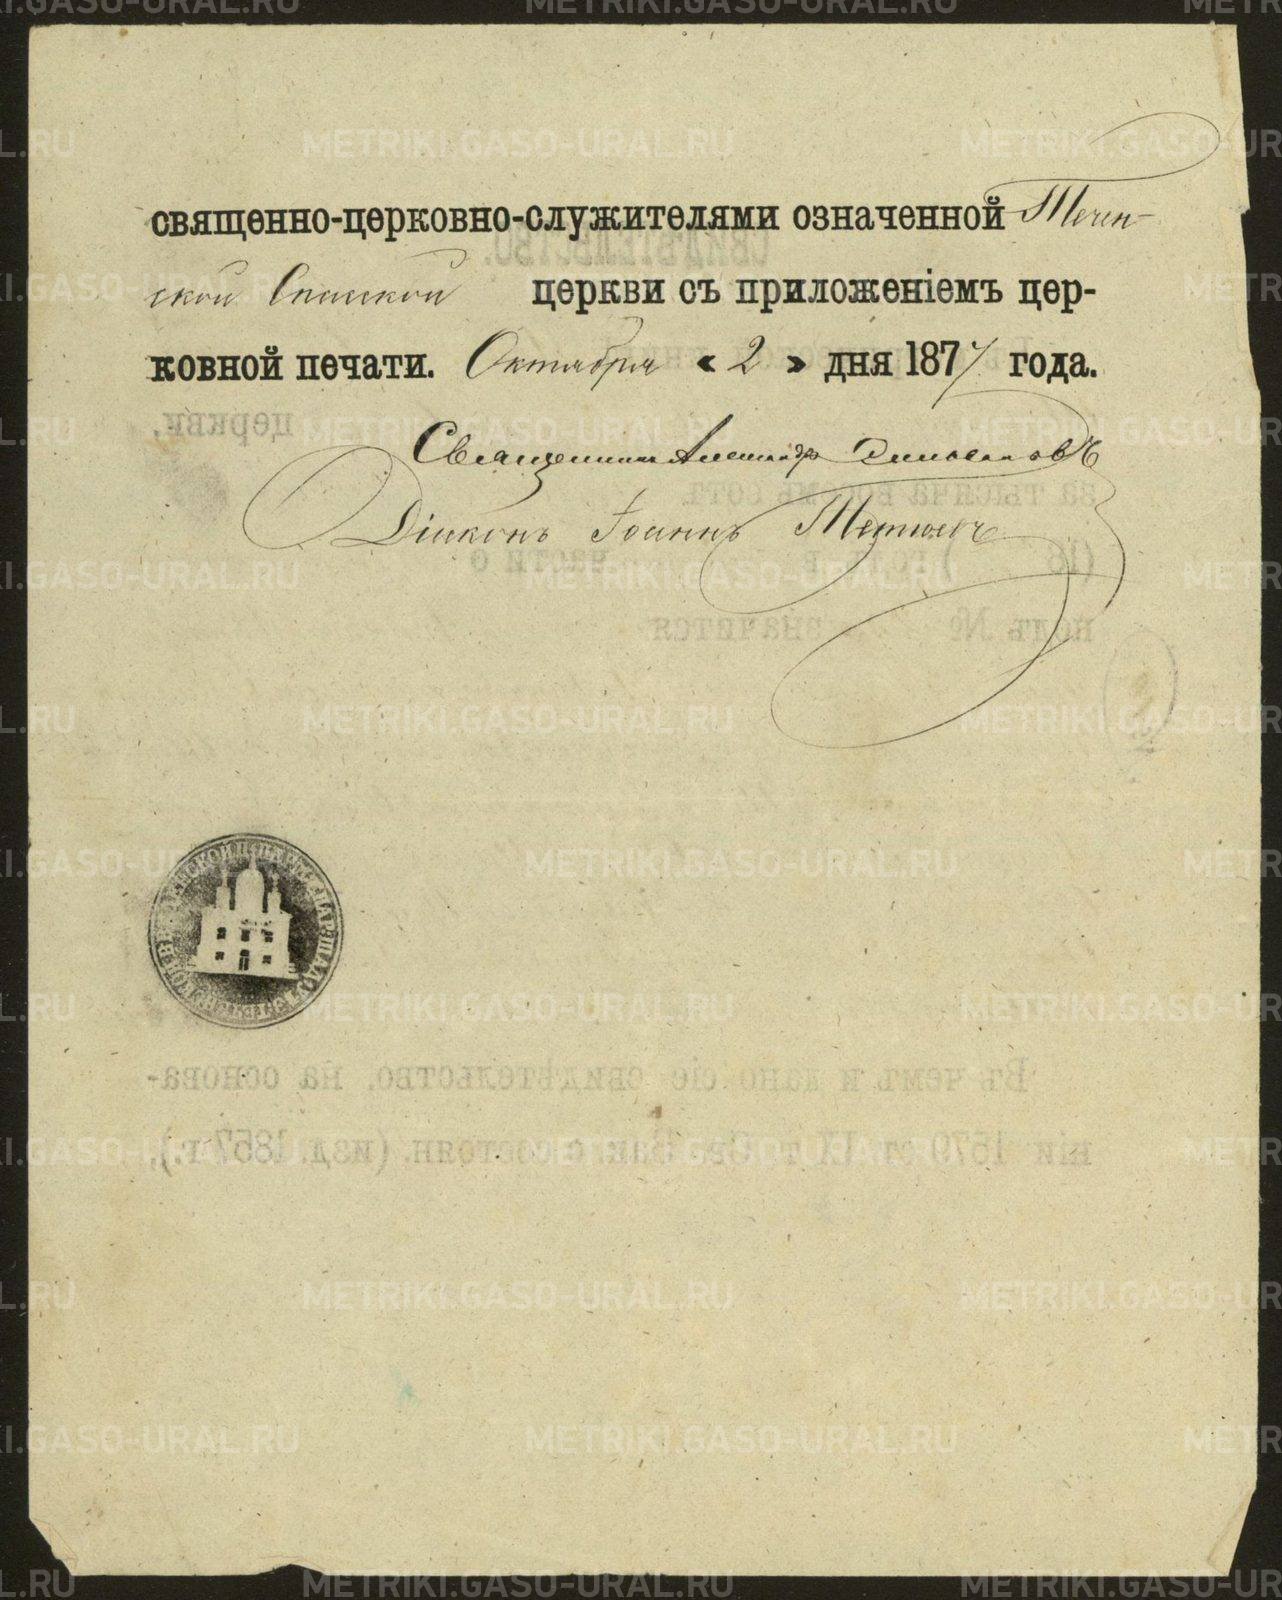 священно-церковно-служителями означенной Течин-
ской Спасской церкви съ приложеніемъ цер-
ковной печати. Октября « 2 » дня 1877 года.
Священникъ Александръ
Діаконъ Іоаннъ
METRIKI.GASO-URAL.RU